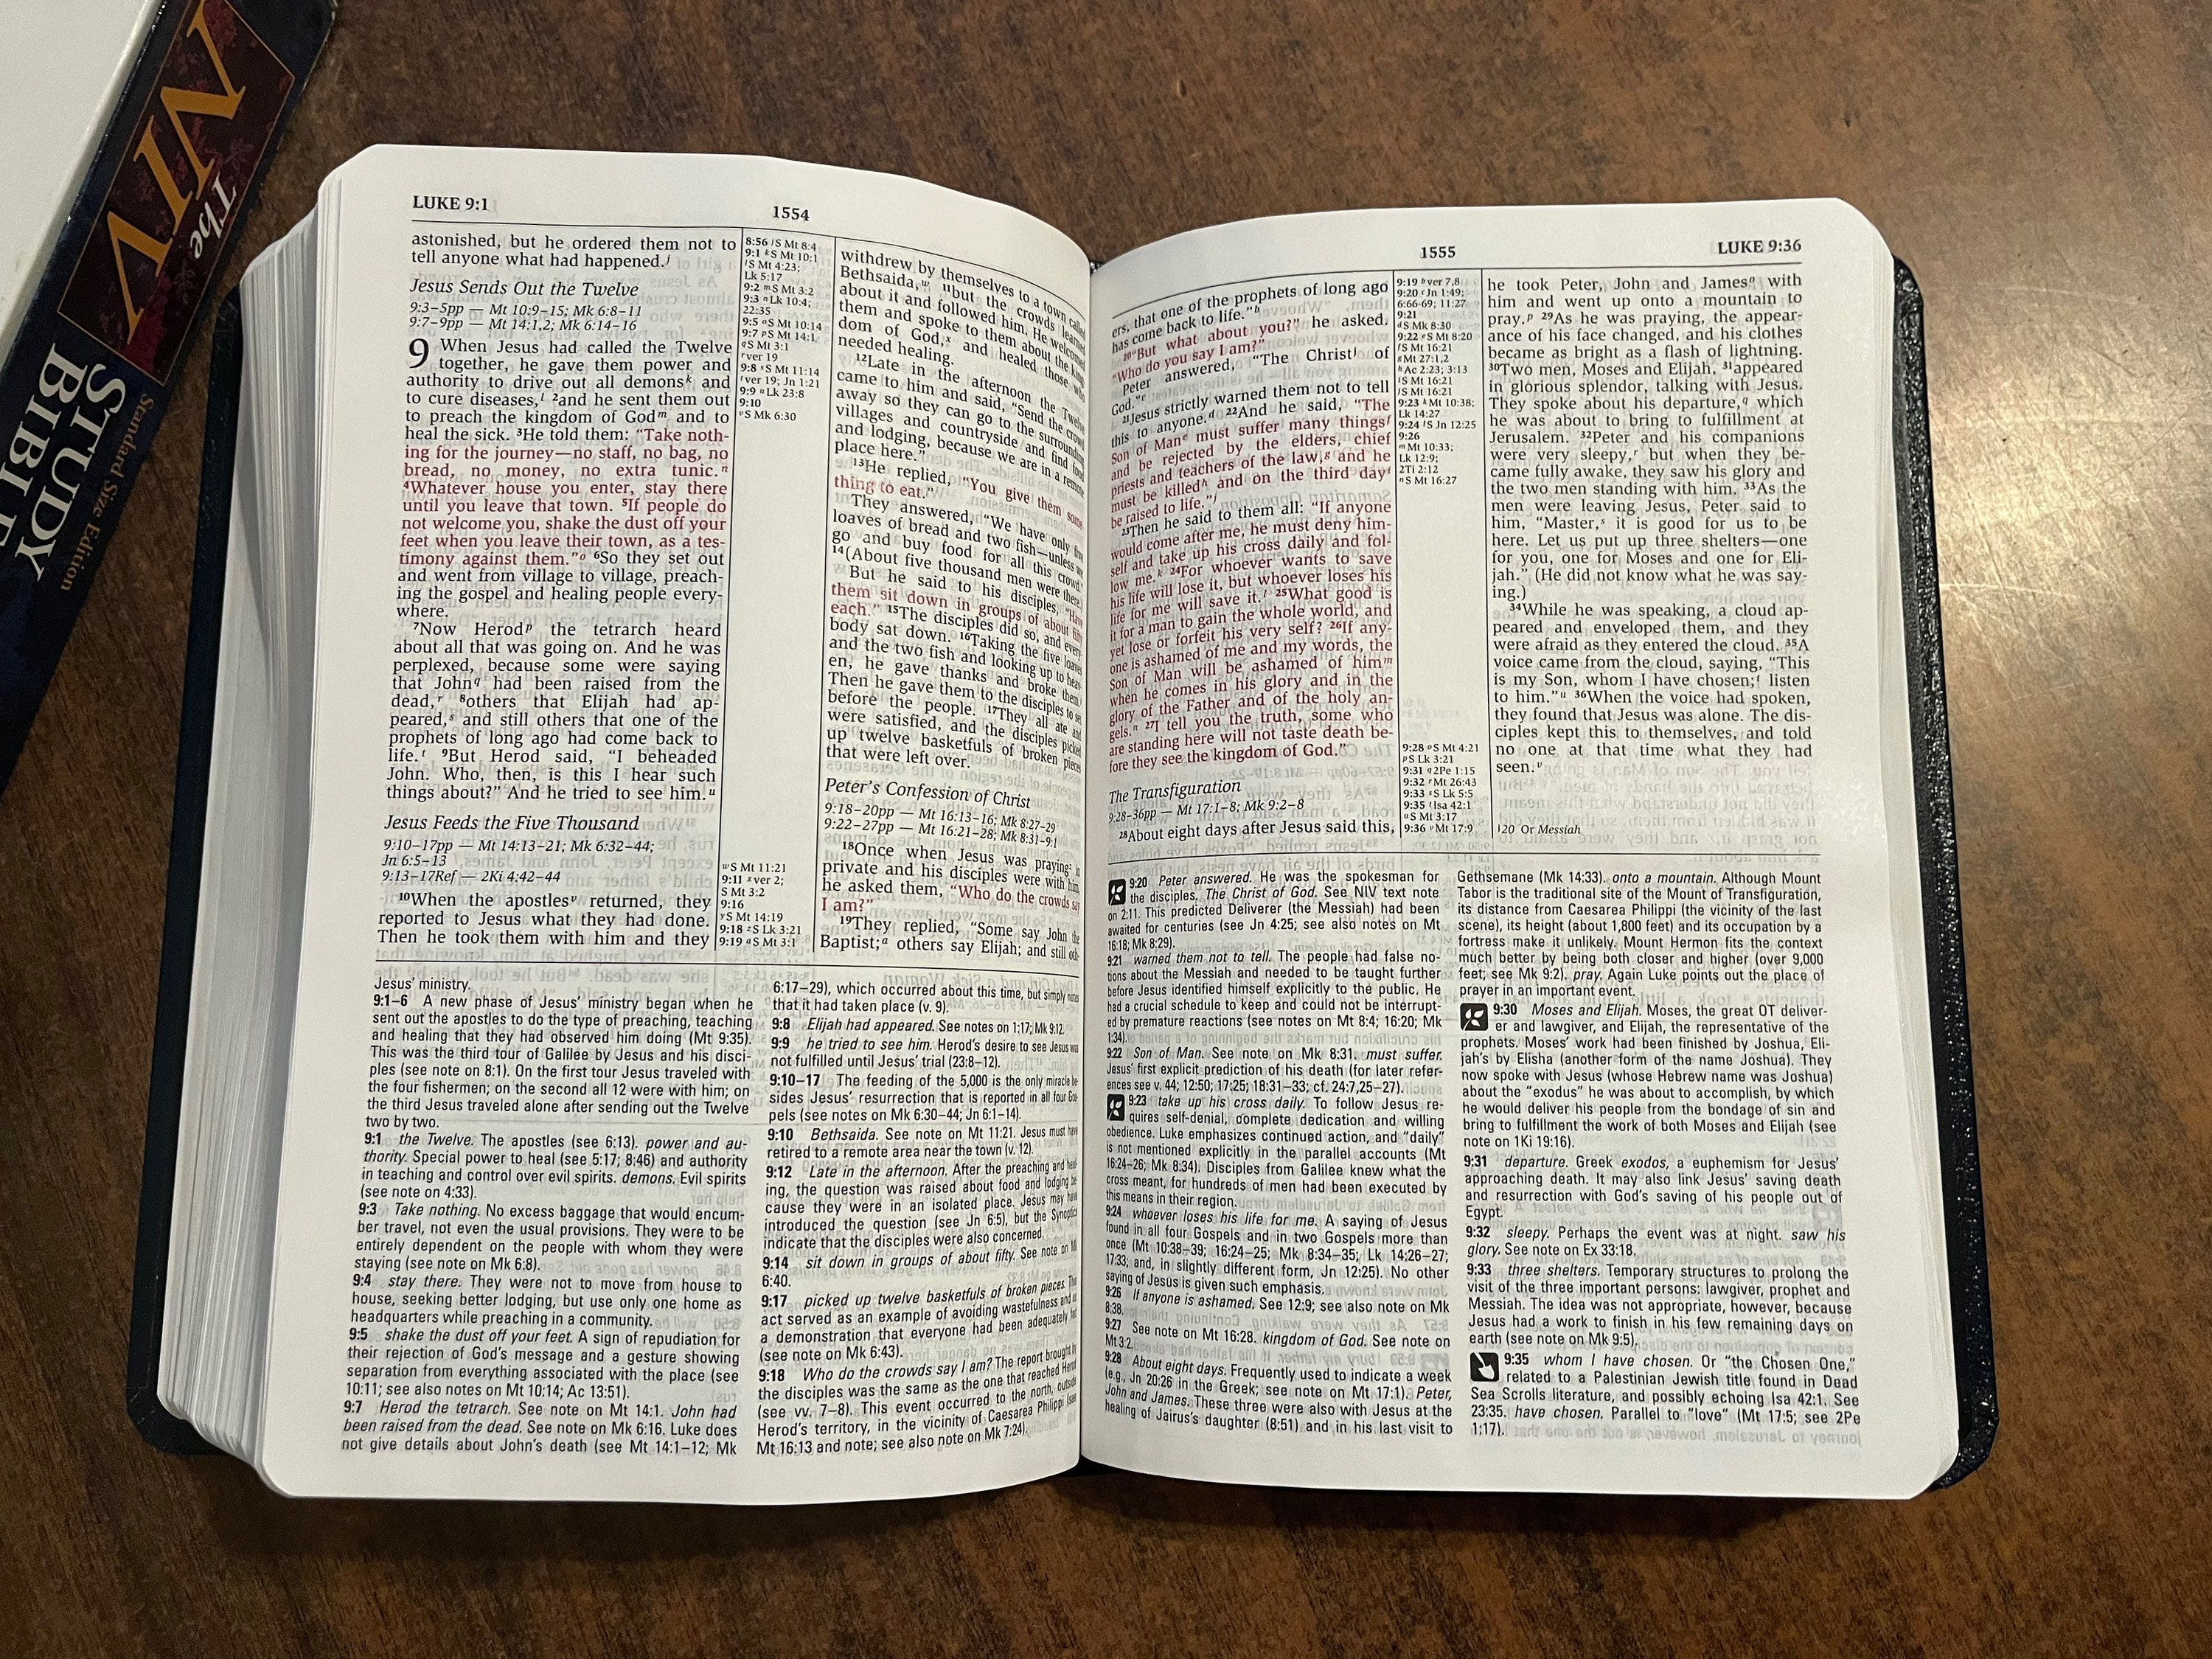 The
NIV
STUDY
Standard Size Edition
LUKE 9:1
1554
astonished, but he ordered them not to
tell anyone what had happened.j
Jesus Sends Out the Twelve
9:3–5pp — Mt 10:9–15; Mk 6:8–11
9:7–9pp — Mt 14:1,2; Mk 6:14–16
9 When Jesus had called the Twelve
together, he gave them power and
authority to drive out all demonsk and
to cure diseases,l 2and he sent them out
to preach the kingdom of Godm and to
heal the sick. 3He told them: “Take noth-
ing for the journey—no staff, no bag, no
bread, no money, no extra tunic.n
4Whatever house you enter, stay there
until you leave that town. 5If people do
not welcome you, shake the dust off your
feet when you leave their town, as a tes-
timony against them.”o 6So they set out
and went from village to village, preach-
ing the gospel and healing people every-
where.
7Now Herodp the tetrarch heard
about all that was going on. And he was
perplexed, because some were saying
that Johnq had been raised from the
dead,r 8others that Elijah had ap-
peared,s and still others that one of the
prophets of long ago had come back to
life.t 9But Herod said, “I beheaded
John. Who, then, is this I hear such
things about?” And he tried to see him.u
Jesus Feeds the Five Thousand
9:10–17pp — Mt 14:13–21; Mk 6:32–44;
Jn 6:5–13
9:13–17Ref — 2Ki 4:42–44
10When the apostlesv returned, they
reported to Jesus what they had done.
Then he took them with him and they
8:56 jS Mt 8:4
9:1 kS Mt 10:1
lS Mt 4:23;
Lk 5:17
9:2 mS Mt 3:2
9:3 nLk 10:4;
22:35
9:5 oS Mt 10:14
9:7 pS Mt 14:1
qS Mt 3:1
rver 19
9:8 sS Mt 11:14
tver 19; Jn 1:21
9:9 uLk 23:8
9:10
vS Mk 6:30
wS Mt 11:21
9:11 xver 2;
S Mt 3:2
9:16
yS Mt 14:19
9:18 zS Lk 3:21
9:19 aS Mt 3:1
withdrew by themselves to a town called
Bethsaida,w 11but the crowds learned
about it and followed him. He welcomed
them and spoke to them about the king-
dom of God,x and healed those who
needed healing.
12Late in the afternoon the Twelve
came to him and said, “Send the crowd
away so they can go to the surrounding
villages and countryside and find food
and lodging, because we are in a remote
place here.”
13He replied, “You give them some-
thing to eat.”
They answered, “We have only five
loaves of bread and two fish—unless we
go and buy food for all this crowd.”
14(About five thousand men were there.)
But he said to his disciples, “Have
them sit down in groups of about fifty
each.” 15The disciples did so, and every-
body sat down. 16Taking the five loaves
and the two fish and looking up to heav-
en, he gave thanks and broke them.y
Then he gave them to the disciples to set
before the people. 17They all ate and
were satisfied, and the disciples picked
up twelve basketfuls of broken pieces
that were left over.
Peter’s Confession of Christ
9:18–20pp — Mt 16:13–16; Mk 8:27–29
9:22–27pp — Mt 16:21–28; Mk 8:31–9:1
18Once when Jesus was prayingz in
private and his disciples were with him,
he asked them, “Who do the crowds say
I am?”
19They replied, “Some say John the
Baptist;a others say Elijah; and still oth-
Jesus’ ministry.
9:1–6 A new phase of Jesus’ ministry began when he
sent out the apostles to do the type of preaching, teaching
and healing that they had observed him doing (Mt 9:35).
This was the third tour of Galilee by Jesus and his disci-
ples (see note on 8:1). On the first tour Jesus traveled with
the four fishermen; on the second all 12 were with him; on
the third Jesus traveled alone after sending out the Twelve
two by two.
9:1 the Twelve. The apostles (see 6:13). power and au-
thority. Special power to heal (see 5:17; 8:46) and authority
in teaching and control over evil spirits. demons. Evil spirits
(see note on 4:33).
9:3 Take nothing. No excess baggage that would encum-
ber travel, not even the usual provisions. They were to be
entirely dependent on the people with whom they were
staying (see note on Mk 6:8).
9:4 stay there. They were not to move from house to
house, seeking better lodging, but use only one home as
headquarters while preaching in a community.
9:5 shake the dust off your feet. A sign of repudiation for
their rejection of God’s message and a gesture showing
separation from everything associated with the place (see
10:11; see also notes on Mt 10:14; Ac 13:51).
9:7 Herod the tetrarch. See note on Mt 14:1. John had
been raised from the dead. See note on Mk 6:16. Luke does
not give details about John’s death (see Mt 14:1–12; Mk
6:17–29), which occurred about this time, but simply notes
that it had taken place (v. 9).
9:8 Elijah had appeared. See notes on 1:17; Mk 9:12.
9:9 he tried to see him. Herod’s desire to see Jesus was
not fulfilled until Jesus’ trial (23:8–12).
9:10–17 The feeding of the 5,000 is the only miracle be-
sides Jesus’ resurrection that is reported in all four Gos-
pels (see notes on Mk 6:30–44; Jn 6:1–14).
9:10 Bethsaida. See note on Mt 11:21. Jesus must have
retired to a remote area near the town (v. 12).
9:12 Late in the afternoon. After the preaching and heal-
ing, the question was raised about food and lodging be-
cause they were in an isolated place. Jesus may have
introduced the question (see Jn 6:5), but the Synoptics
indicate that the disciples were also concerned.
9:14 sit down in groups of about fifty. See note on M
6:40.
9:17 picked up twelve basketfuls of broken pieces. This
act served as an example of avoiding wastefulness and as
a demonstration that everyone had been adequately fed
(see note on Mk 6:43).
9:18 Who do the crowds say I am? The report brought by
the disciples was the same as the one that reached Herod
(see vv. 7–8). This event occurred to the north, outside
Herod’s territory, in the vicinity of Caesarea Philippi (see
Mt 16:13 and note; see also note on Mk 7:24).
1555
LUKE 9:36
ers, that one of the prophets of long ago
has come back to life.”b
20“But what about you?” he asked.
“Who do you say I am?”
Peter answered, “The Christj of
God.”c
21Jesus strictly warned them not to tell
this to anyone.d 22And he said, “The
Son of Mane must suffer many thingsf
and be rejected by the elders, chief
priests and teachers of the law,g and he
must be killedh and on the third dayi
be raised to life.”j
23Then he said to them all: “If anyone
would come after me, he must deny him-
self and take up his cross daily and fol-
low me.k 24For whoever wants to save
his life will lose it, but whoever loses his
life for me will save it.l 25What good is
it for a man to gain the whole world, and
yet lose or forfeit his very self? 26If any-
one is ashamed of me and my words, the
Son of Man will be ashamed of himm
when he comes in his glory and in the
glory of the Father and of the holy an-
gels.n 27I tell you the truth, some who
are standing here will not taste death be-
fore they see the kingdom of God.”
The Transfiguration
9:28–36pp — Mt 17:1–8; Mk 9:2–8
28About eight days after Jesus said this,
9:19 bver 7,8
9:20 cJn 1:49;
6:66-69; 11:27
9:21
dS Mk 8:30
9:22 eS Mt 8:20
fS Mt 16:21
gMt 27:1,2
hAc 2:23; 3:13
iS Mt 16:21
jS Mt 16:21
9:23 kMt 10:38;
Lk 14:27
9:24 lS Jn 12:25
9:26
mMt 10:33;
Lk 12:9;
2Ti 2:12
nS Mt 16:27
9:28 oS Mt 4:21
pS Lk 3:21
9:31 q2Pe 1:15
9:32 rMt 26:43
9:33 sS Lk 5:5
9:35 tIsa 42:1
uS Mt 3:17
9:36 vMt 17:9
he took Peter, John and Jameso with
him and went up onto a mountain to
pray.p 29As he was praying, the appear-
ance of his face changed, and his clothes
became as bright as a flash of lightning.
30Two men, Moses and Elijah, 31appeared
in glorious splendor, talking with Jesus.
They spoke about his departure,q which
he was about to bring to fulfillment at
Jerusalem. 32Peter and his companions
were very sleepy,r but when they be-
came fully awake, they saw his glory and
the two men standing with him. 33As the
men were leaving Jesus, Peter said to
him, “Master,s it is good for us to be
here. Let us put up three shelters—one
for you, one for Moses and one for Eli-
jah.” (He did not know what he was say-
ing.)
34While he was speaking, a cloud ap-
peared and enveloped them, and they
were afraid as they entered the cloud. 35A
voice came from the cloud, saying, “This
is my Son, whom I have chosen;t listen
to him.”u 36When the voice had spoken,
they found that Jesus was alone. The dis-
ciples kept this to themselves, and told
no one at that time what they had
seen.v
j20 Or Messiah
9:20 Peter answered. He was the spokesman for
the disciples. The Christ of God. See NIV text note
on 2:11. This predicted Deliverer (the Messiah) had been
awaited for centuries (see Jn 4:25; see also notes on Mt
16:18; Mk 8:29).
9:21 warned them not to tell. The people had false no-
tions about the Messiah and needed to be taught further
before Jesus identified himself explicitly to the public. He
had a crucial schedule to keep and could not be interrupt-
ed by premature reactions (see notes on Mt 8:4; 16:20; Mk
1:34).
9:22 Son of Man. See note on Mk 8:31. must suffer.
Jesus’ first explicit prediction of his death (for later refer-
ences see v. 44; 12:50; 17:25; 18:31–33; cf. 24:7,25–27).
9:23 take up his cross daily. To follow Jesus re-
quires self-denial, complete dedication and willing
obedience. Luke emphasizes continued action, and “daily”
is not mentioned explicitly in the parallel accounts (Mt
16:24–26; Mk 8:34). Disciples from Galilee knew what the
cross meant, for hundreds of men had been executed by
this means in their region.
9:24 whoever loses his life for me. A saying of Jesus
found in all four Gospels and in two Gospels more than
once (Mt 10:38–39; 16:24–25; Mk 8:34–35; Lk 14:26–27;
17:33; and, in slightly different form, Jn 12:25). No other
saying of Jesus is given such emphasis.
9:26 If anyone is ashamed. See 12:9; see also note on Mk
8:38.
9:27 See note on Mt 16:28. kingdom of God. See note on
Mt 3:2.
9:28 About eight days. Frequently used to indicate a week
(e.g., Jn 20:26 in the Greek; see note on Mt 17:1). Peter,
John and James. These three were also with Jesus at the
healing of Jairus’s daughter (8:51) and in his last visit to
Gethsemane (Mk 14:33). onto a mountain. Although Mount
Tabor is the traditional site of the Mount of Transfiguration,
its distance from Caesarea Philippi (the vicinity of the last
scene), its height (about 1,800 feet) and its occupation by a
fortress make it unlikely. Mount Hermon fits the context
much better by being both closer and higher (over 9,000
feet; see Mk 9:2). pray. Again Luke points out the place of
prayer in an important event.
9:30 Moses and Elijah. Moses, the great OT deliver-
er and lawgiver, and Elijah, the representative of the
prophets. Moses’ work had been finished by Joshua, Eli-
jah’s by Elisha (another form of the name Joshua). They
now spoke with Jesus (whose Hebrew name was Joshua)
about the “exodus” he was about to accomplish, by which
he would deliver his people from the bondage of sin and
bring to fulfillment the work of both Moses and Elijah (see
note on 1Ki 19:16).
9:31 departure. Greek exodos, a euphemism for Jesus’
approaching death. It may also link Jesus’ saving death
and resurrection with God’s saving of his people out of
Egypt.
9:32 sleepy. Perhaps the event was at night. saw his
glory. See note on Ex 33:18.
9:33 three shelters. Temporary structures to prolong the
visit of the three important persons: lawgiver, prophet and
Messiah. The idea was not appropriate, however, because
Jesus had a work to finish in his few remaining days on
earth (see note on Mk 9:5).
9:35 whom I have chosen. Or “the Chosen One,”
related to a Palestinian Jewish title found in Dead
Sea Scrolls literature, and possibly echoing Isa 42:1. See
23:35. have chosen. Parallel to “love” (Mt 17:5; see 2Pe
1:17).